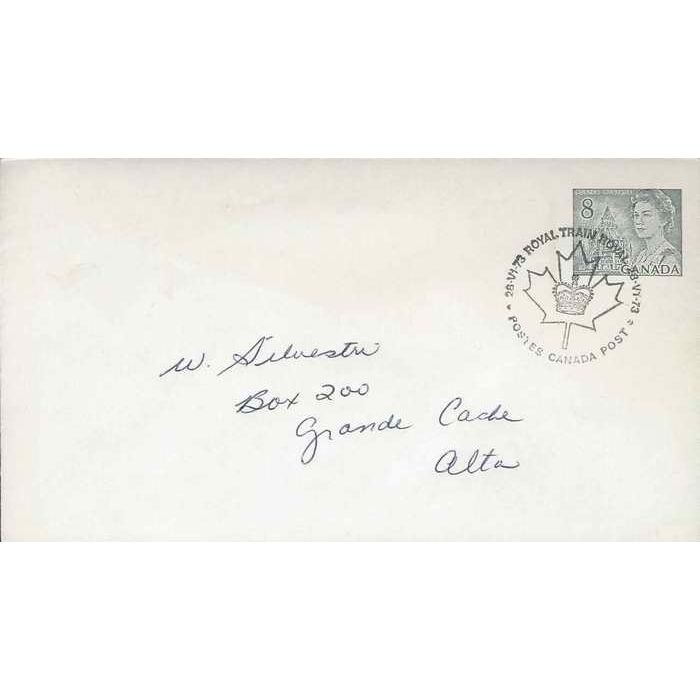 8
CANADA
28·VI·73 ROYAL TRAIN ROYAL 28·VI·73
POSTES CANADA POST
W. Silvestri
Box 200
Grande Cache
Alta